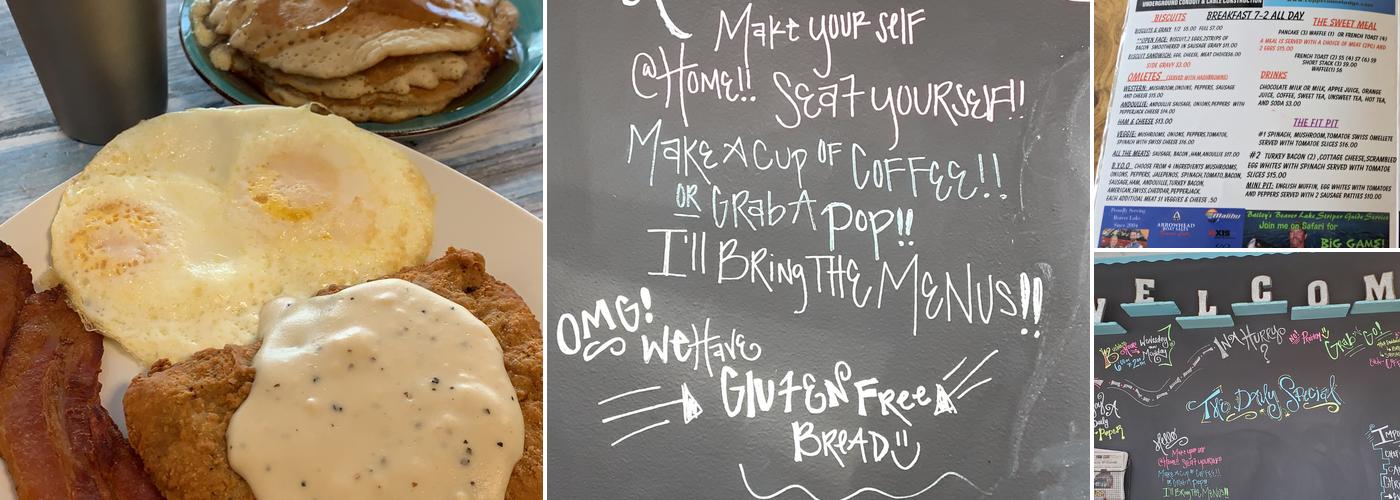 Make your self
@Home!! Seat yourself!!
Make A Cup of Coffee!!
or Grab A Pop!!
I'll Bring The Menus!!
OMG!
We Have
Gluten Free
Bread
UNDERGROUND CONDUIT & CABLE CONSTRUCTION
BISCUITS
BREAKFAST 7-2 ALL DAY
BISCUITS & GRAVY 1/2 $5.00 FULL $7.00
**OPEN FACE: BISCUIT, 2 EGGS, 2STRIPS OF
BACON SMOOTHERED IN SAUSAGE GRAVY $11.00
BISCUIT SANDWICH: EGG, CHEESE, MEAT CHOICE $6.00
SIDE GRAVY $3.00
OMLETES (SERVED WITH HASHBROWNS)
WESTERN: MUSHROOM, ONIONS, PEPPERS, SAUSAGE
AND CHEESE $15.00
ANDOUILLIE: ANDOUILLE SAUSAGE, ONIONS, PEPPERS WITH
PEPPERJACK CHEESE $14.00
HAM & CHEESE $13.00
VEGGIE: MUSHROOMS, ONIONS, PEPPERS, TOMATOE,
SPINACH WITH SWISS CHEESE $16.00
ALL THE MEATS: SAUSAGE, BACON, HAM, ANOUILLE $17.00
B.Y.O.O CHOOSE FROM 4 INGREDIENTS MUSHROOMS,
ONIONS, PEPPERS, JALEPENOS, SPINACH, TOMATO, BACON,
SAUSAGE, HAM, ANDOUILLE, TURKEY BACON,
AMERICAN, SWISS, CHEDDAR, PEPPERJACK.
EACH ADDITIONAL MEAT $1 VEGGIES & CHEESE .50
THE SWEET MEAL
PANCAKE (3) WAFFLE (1) OR FRENCH TOAST (4)
A MEAL IS SERVED WITH A CHOICE OF MEAT (2PC) AND
2 EGGS $15.00
FRENCH TOAST (2) $5 (4) $7 (6) $9
SHORT STACK (3) $9.00
WAFFLE(1) $6
DRINKS
CHOCOLATE MILK OR MILK, APPLE JUICE, ORANGE
JUICE, COFFEE, SWEET TEA, UNSWEET TEA, HOT TEA,
AND SODA $3.00
THE FIT PIT
#1 SPINACH, MUSHROOM, TOMATOE SWISS OMELETTE
SERVED WITH TOMATOE SLICES $16.00
#2 TURKEY BACON (2), COTTAGE CHEESE, SCRAMBLED
EGG WHITES WITH SPINACH SERVED WITH TOMATOE
SLICES $15.00
MINI PIT: ENGLISH MUFFIN, EGG WHITES WITH TOMATOES
AND PEPPERS SERVED WITH 2 SAUSAGE PATTIES $10.00
Proudly Serving
Beaver Lake
Since 2004
ARROWHEAD
Malibu
AXIS
Bailey's Beaver Lake Striper Guide Service
Join me on Safari for
BIG GAME!
ELCOM
In A Hurry
?
Grab & Go!
The Daily Special
Hello!
Make your self
@Home!! Seat yourself
Make A Cup of Coffee!!
or Grab A Pop!!
I'll Bring The Menus!!